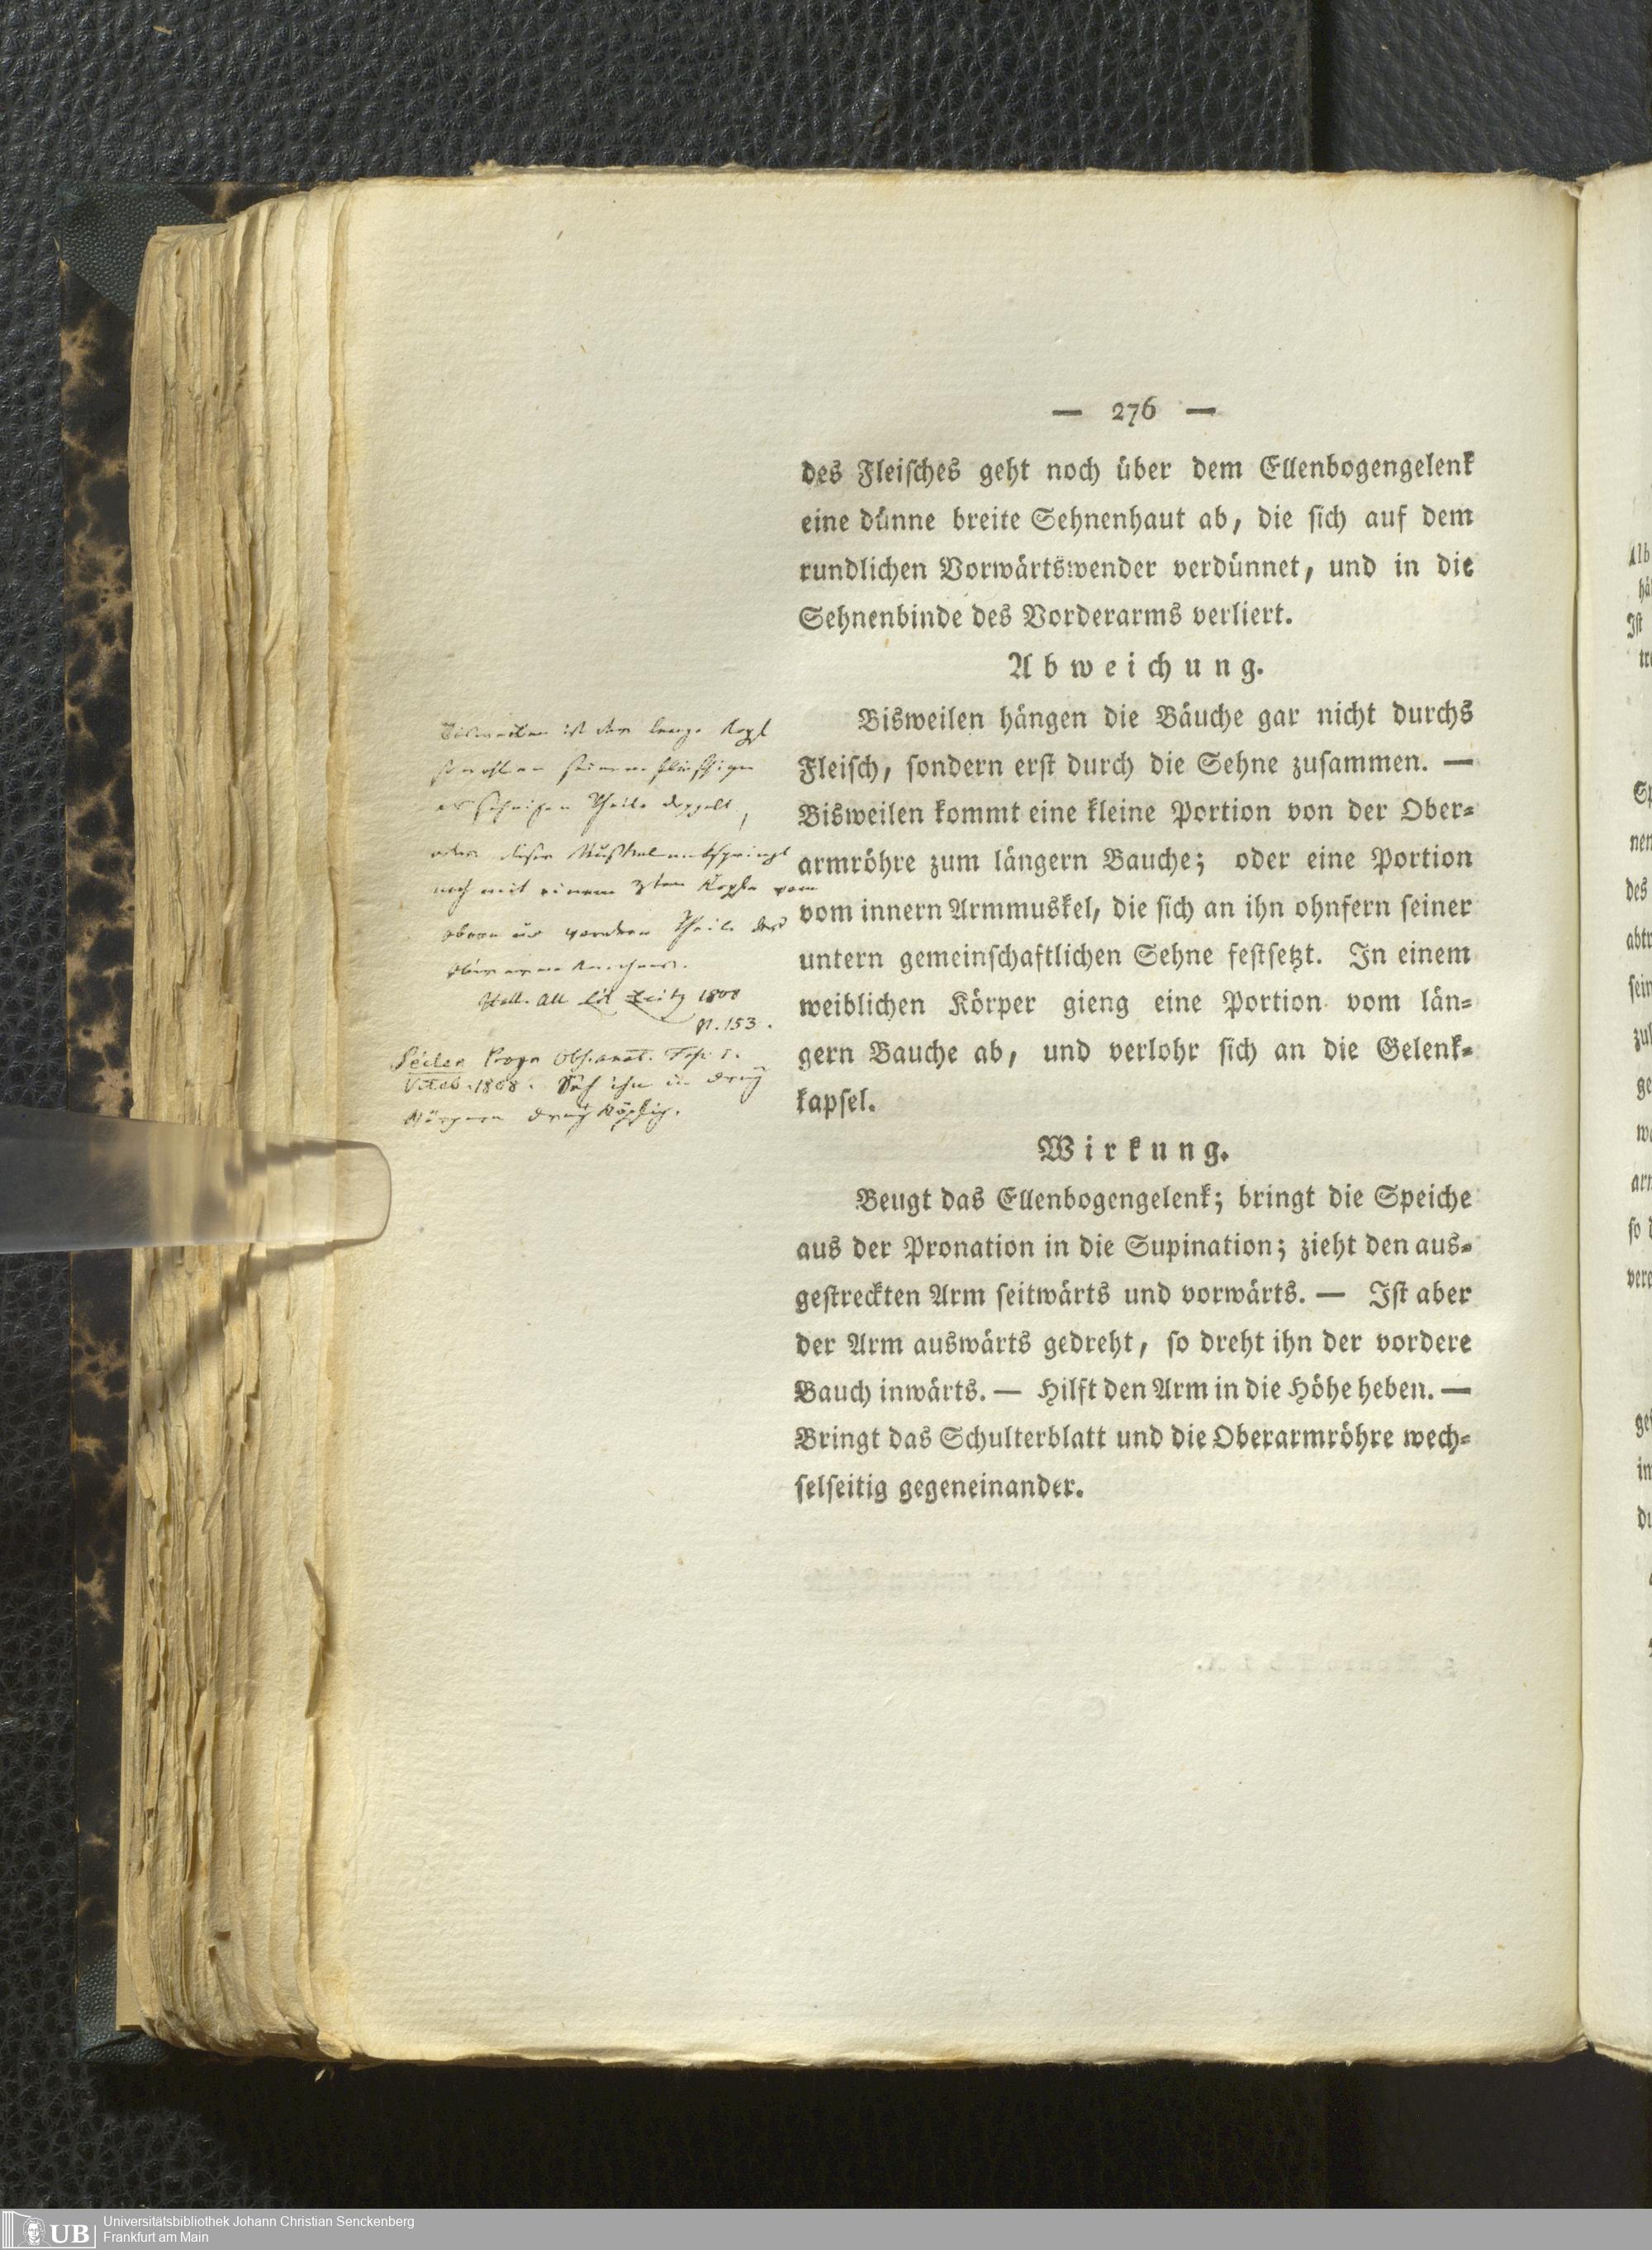 — 276 —
des Fleiſches geht noch über dem Ellenbogengelenk
eine dünne breite Sehnenhaut ab, die ſich auf dem
rundlichen Vorwärtswender verdünnet, und in die
Sehnenbinde des Vorderarms verliert.
Abweichung.
Bisweilen hängen die Bäuche gar nicht durchs
Fleiſch, ſondern erſt durch die Sehne zuſammen. —
Bisweilen kommt eine kleine Portion von der Ober-
armröhre zum längern Bauche; oder eine Portion
vom innern Armmuskel, die ſich an ihn ohnfern ſeiner
untern gemeinſchaftlichen Sehne feſtſetzt. In einem
weiblichen Körper gieng eine Portion vom län-
gern Bauche ab, und verlohr ſich an die Gelenk-
kapſel.
Wirkung.
Beugt das Ellenbogengelenk; bringt die Speiche
aus der Pronation in die Supination; zieht den aus-
geſtreckten Arm ſeitwärts und vorwärts. — Iſt aber
der Arm auswärts gedreht, ſo dreht ihn der vordere
Bauch inwärts. — Hilft den Arm in die Höhe heben. —
Bringt das Schulterblatt und die Oberarmröhre wech-
ſelſeitig gegeneinander.
Bisweilen ist der lange Kopf
Theile doppelt,
oder dieser Muskel entspringt
noch mit einem 3ten Kopfe vom
obern und vordern Theile des
Hall. All. Lit Zeitg 1808
p. 153.
Seiler Progr Obs. anat. Fasc. I.
Viteb. 1808. Sah ihn in drey
Körpern dreyköpfig.
UB
Universitätsbibliothek Johann Christian Senckenberg
Frankfurt am Main